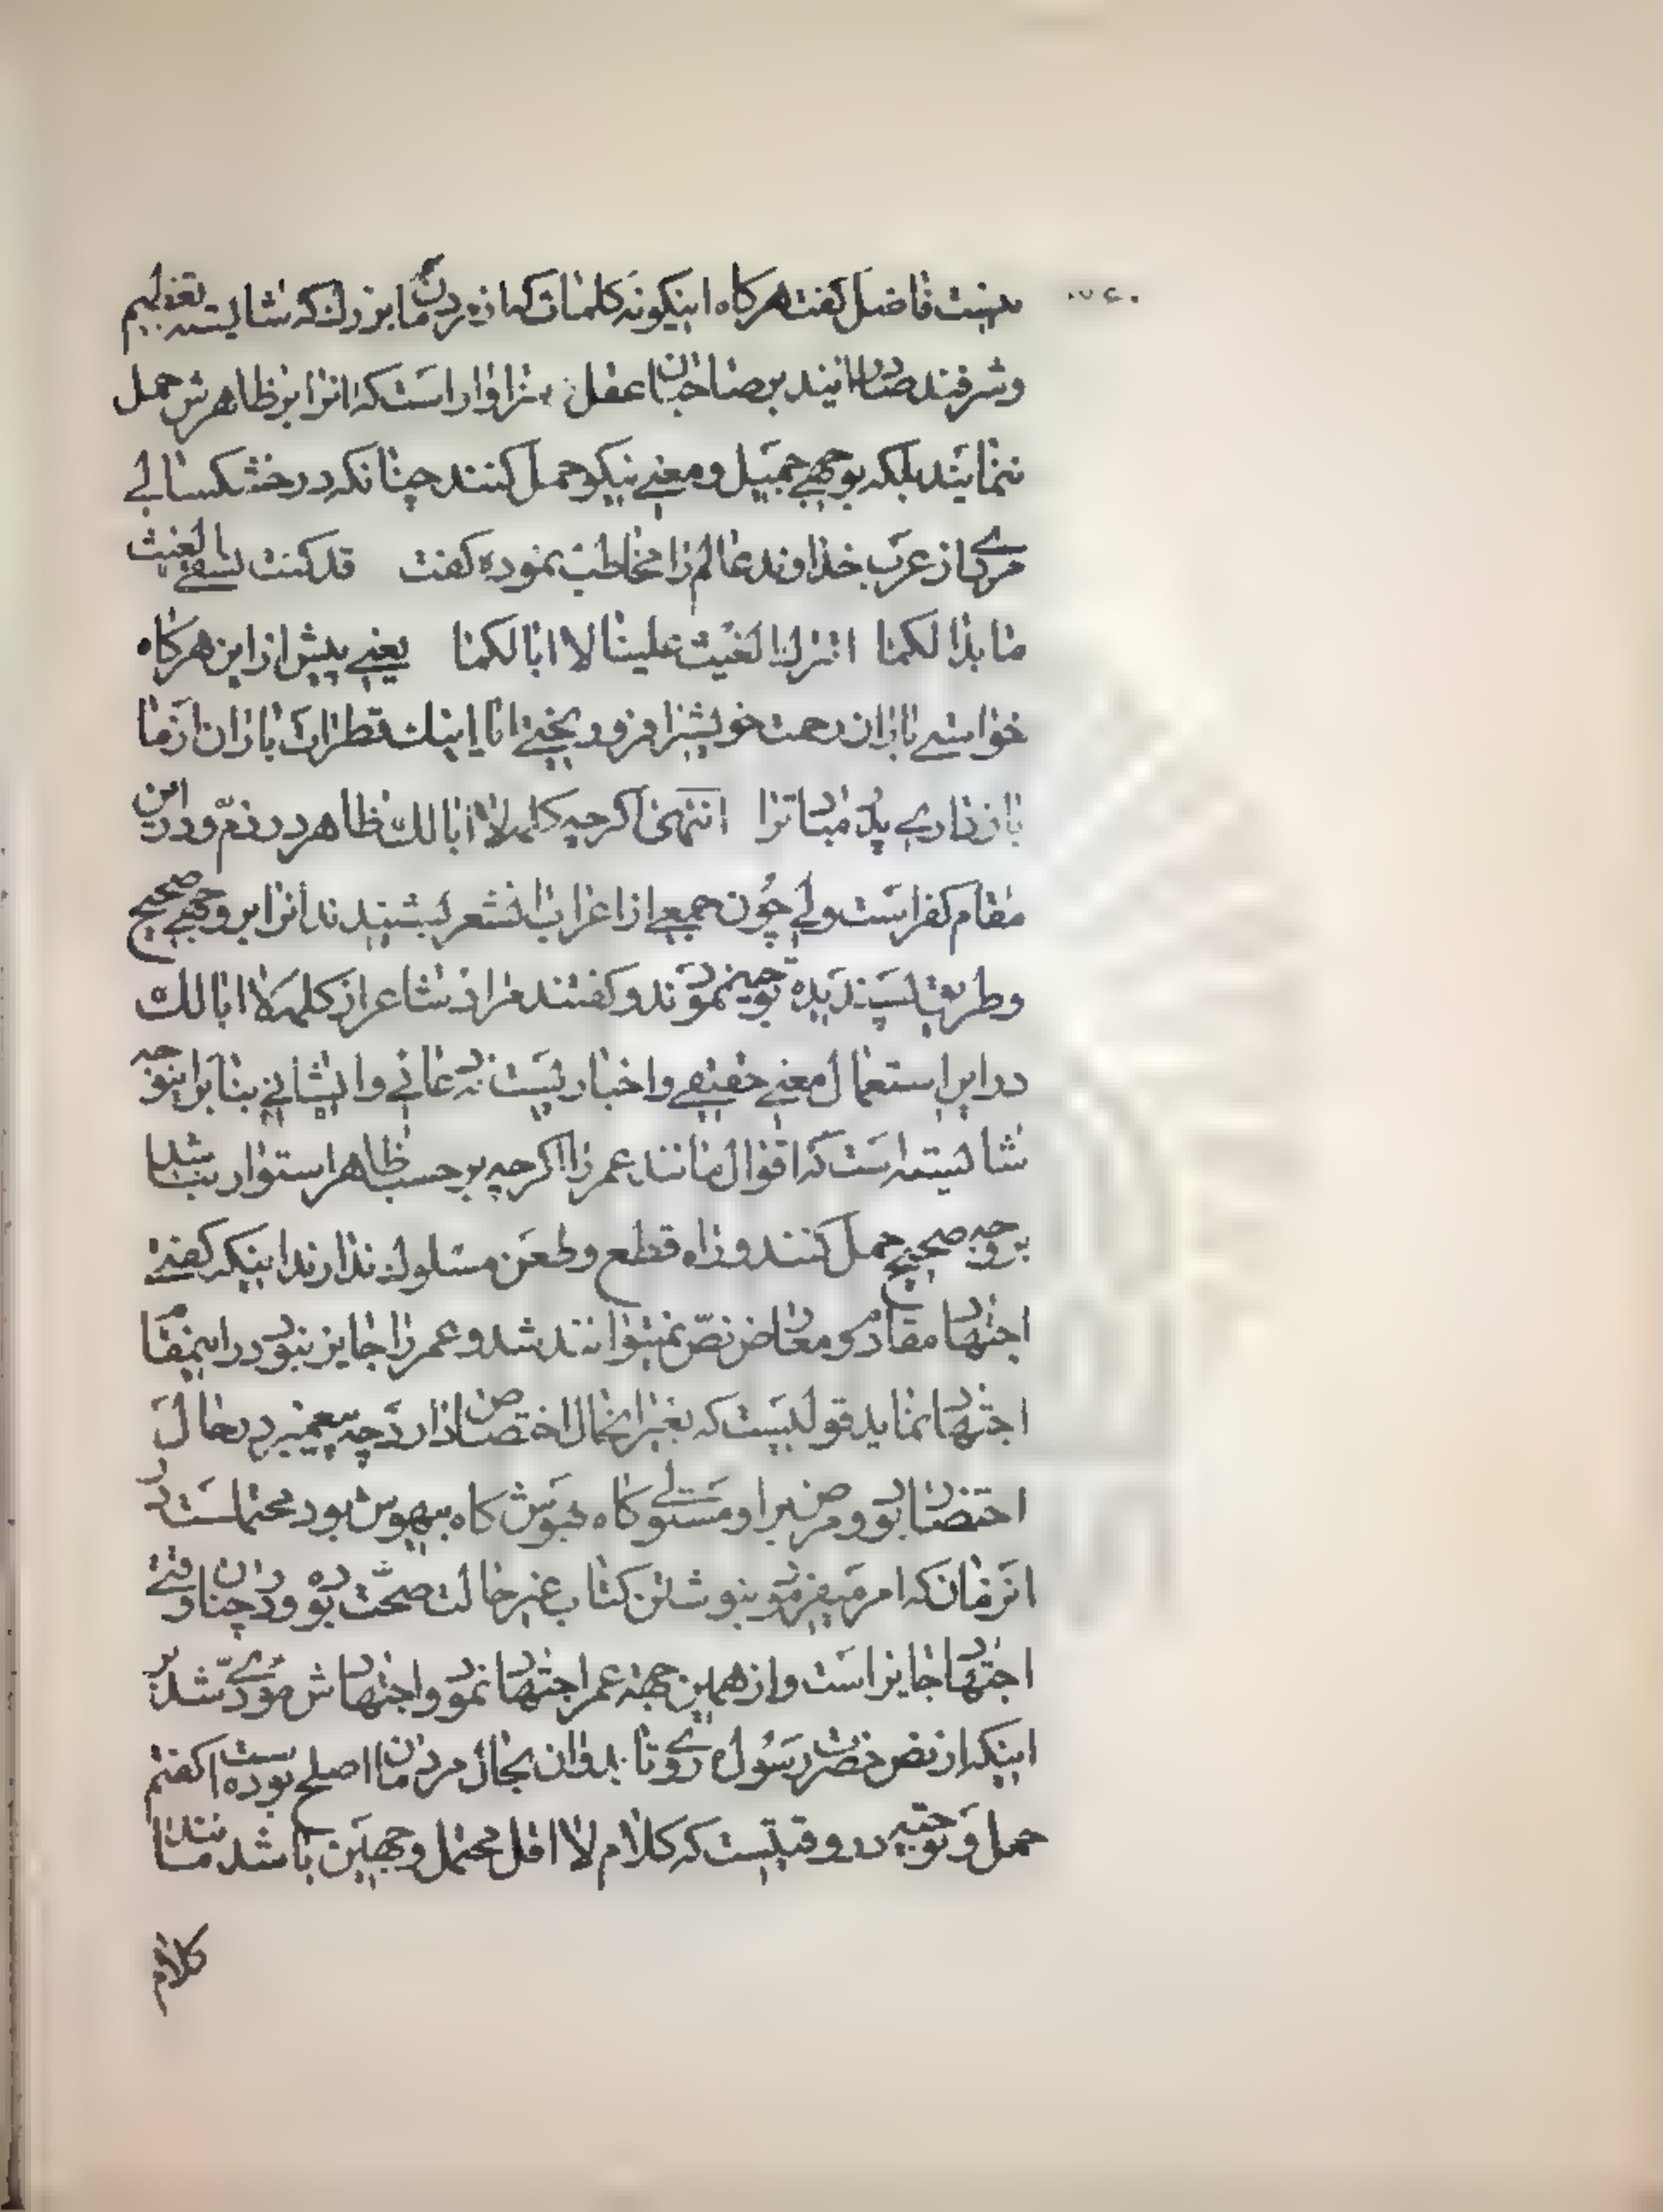 نیست فاضل کفت هرکاه اینکونه کلمات که از مردمان بزرك که شایسته تعظیم
وشرفند صادر آیند بر صاحبان عقل سزاوار است که انرا بر ظاهرش حمل
ننمایند بلکه بوجهی جمیل ومعنی نیکو حمل کنند چنانکه در خشکسالی
مردی از عرب خداوند عالم را مخاطب نموده کفت قد کنت تسقی الغیث
ما بدا لکما انزل الغیث علینا لا ابا لکما یعنی پیش از این هرکاه
خواستی باران رحمت خویش را فرو ریختی اما اینك قطرات باران از ما
باز داری پدر مباد ترا انتهی اکرچه کلمه لا ابا لك ظاهر در ذم ودر این
مقام کفر است ولی چون جمعی از اعراب انشعر بشنیدند انرا بر وجهی صحیح
وطریقه پسندیده توجیه نمودند وکفتند مراد شاعر از کلمه لا ابا لك
در این استعمال معنی حقیقی واخبار نیست نه دعائی وانشائی بنا براینوجه
شایسته است که اقوال مانند عمر را اکرچه بر حسب ظاهر استوار نباشد
بر وجه صحیح حمل کنند وراه قطع وطعن مسلوك ندارند اینکه کفتی
اجتهاد مقاوم ومعارض نص نمیتوانند شد وعمر را جایز نبود در اینمقام
اجتهاد نماید قولیست که بغیر اینحال اختصاص دارد چه پیغمبر در حال
احتضار بود ومرض بر او مستولی کاه بهوش کاه بیهوش بود محتملست در
انزمان که امر میفرمود بنوشتن کتاب غیر حالت صحت بوده ودر چنان وقتی
اجتهاد جایز است واز همین جهة عمر اجتهاد نمود واجتهادش مؤدی شد بر
اینکه از نص حضرت رسول روی تابد وان بحال مردمان اصلح بوده است کفتم
حمل وتوجیه در وقتیست که کلام لا اقل محتمل وجهین باشد مانند
کلام